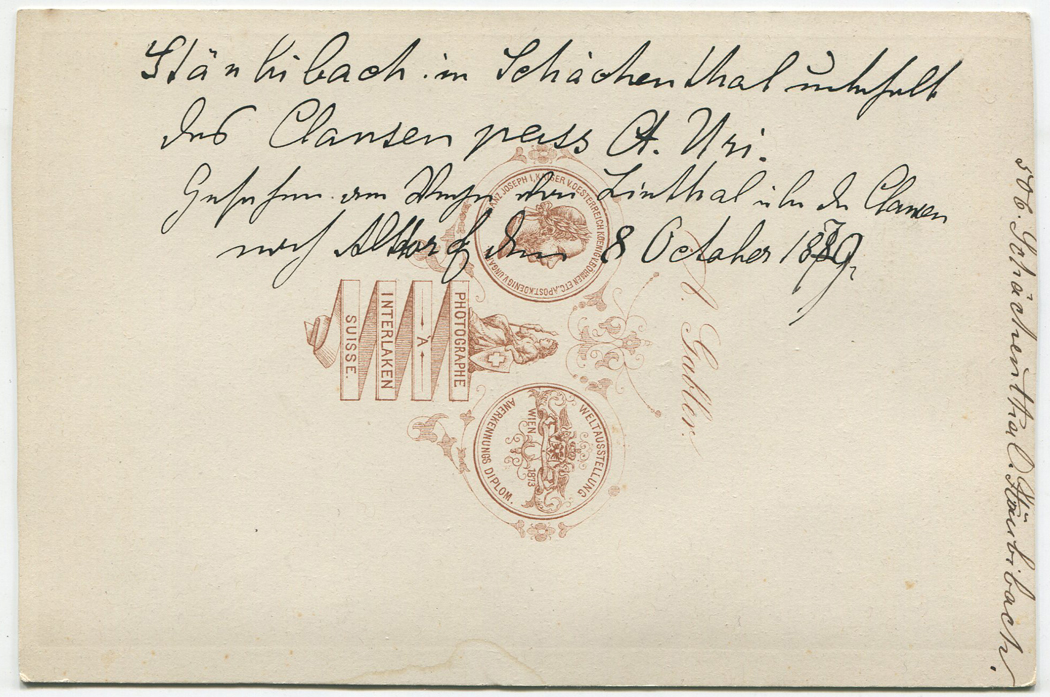 Stäubibach im Schächenthal unterhalb
des Clausenpass Ct. Uri.
Gesehen am Wege von Linthal über den Clausen
nach Altdorf den 8 October 1879.
506. Schächenthal. Stäubibach.
A. Gabler.
FRANZ JOSEPH I, KAISER V. OESTERREICH KOENIG V. BÖHMEN ETC. APOST. KOENIG V. UNGARN
PHOTOGRAPHE
À
INTERLAKEN
SUISSE.
WELTAUSSTELLUNG
WIEN 1873
ANERKENNUNGS DIPLOM.